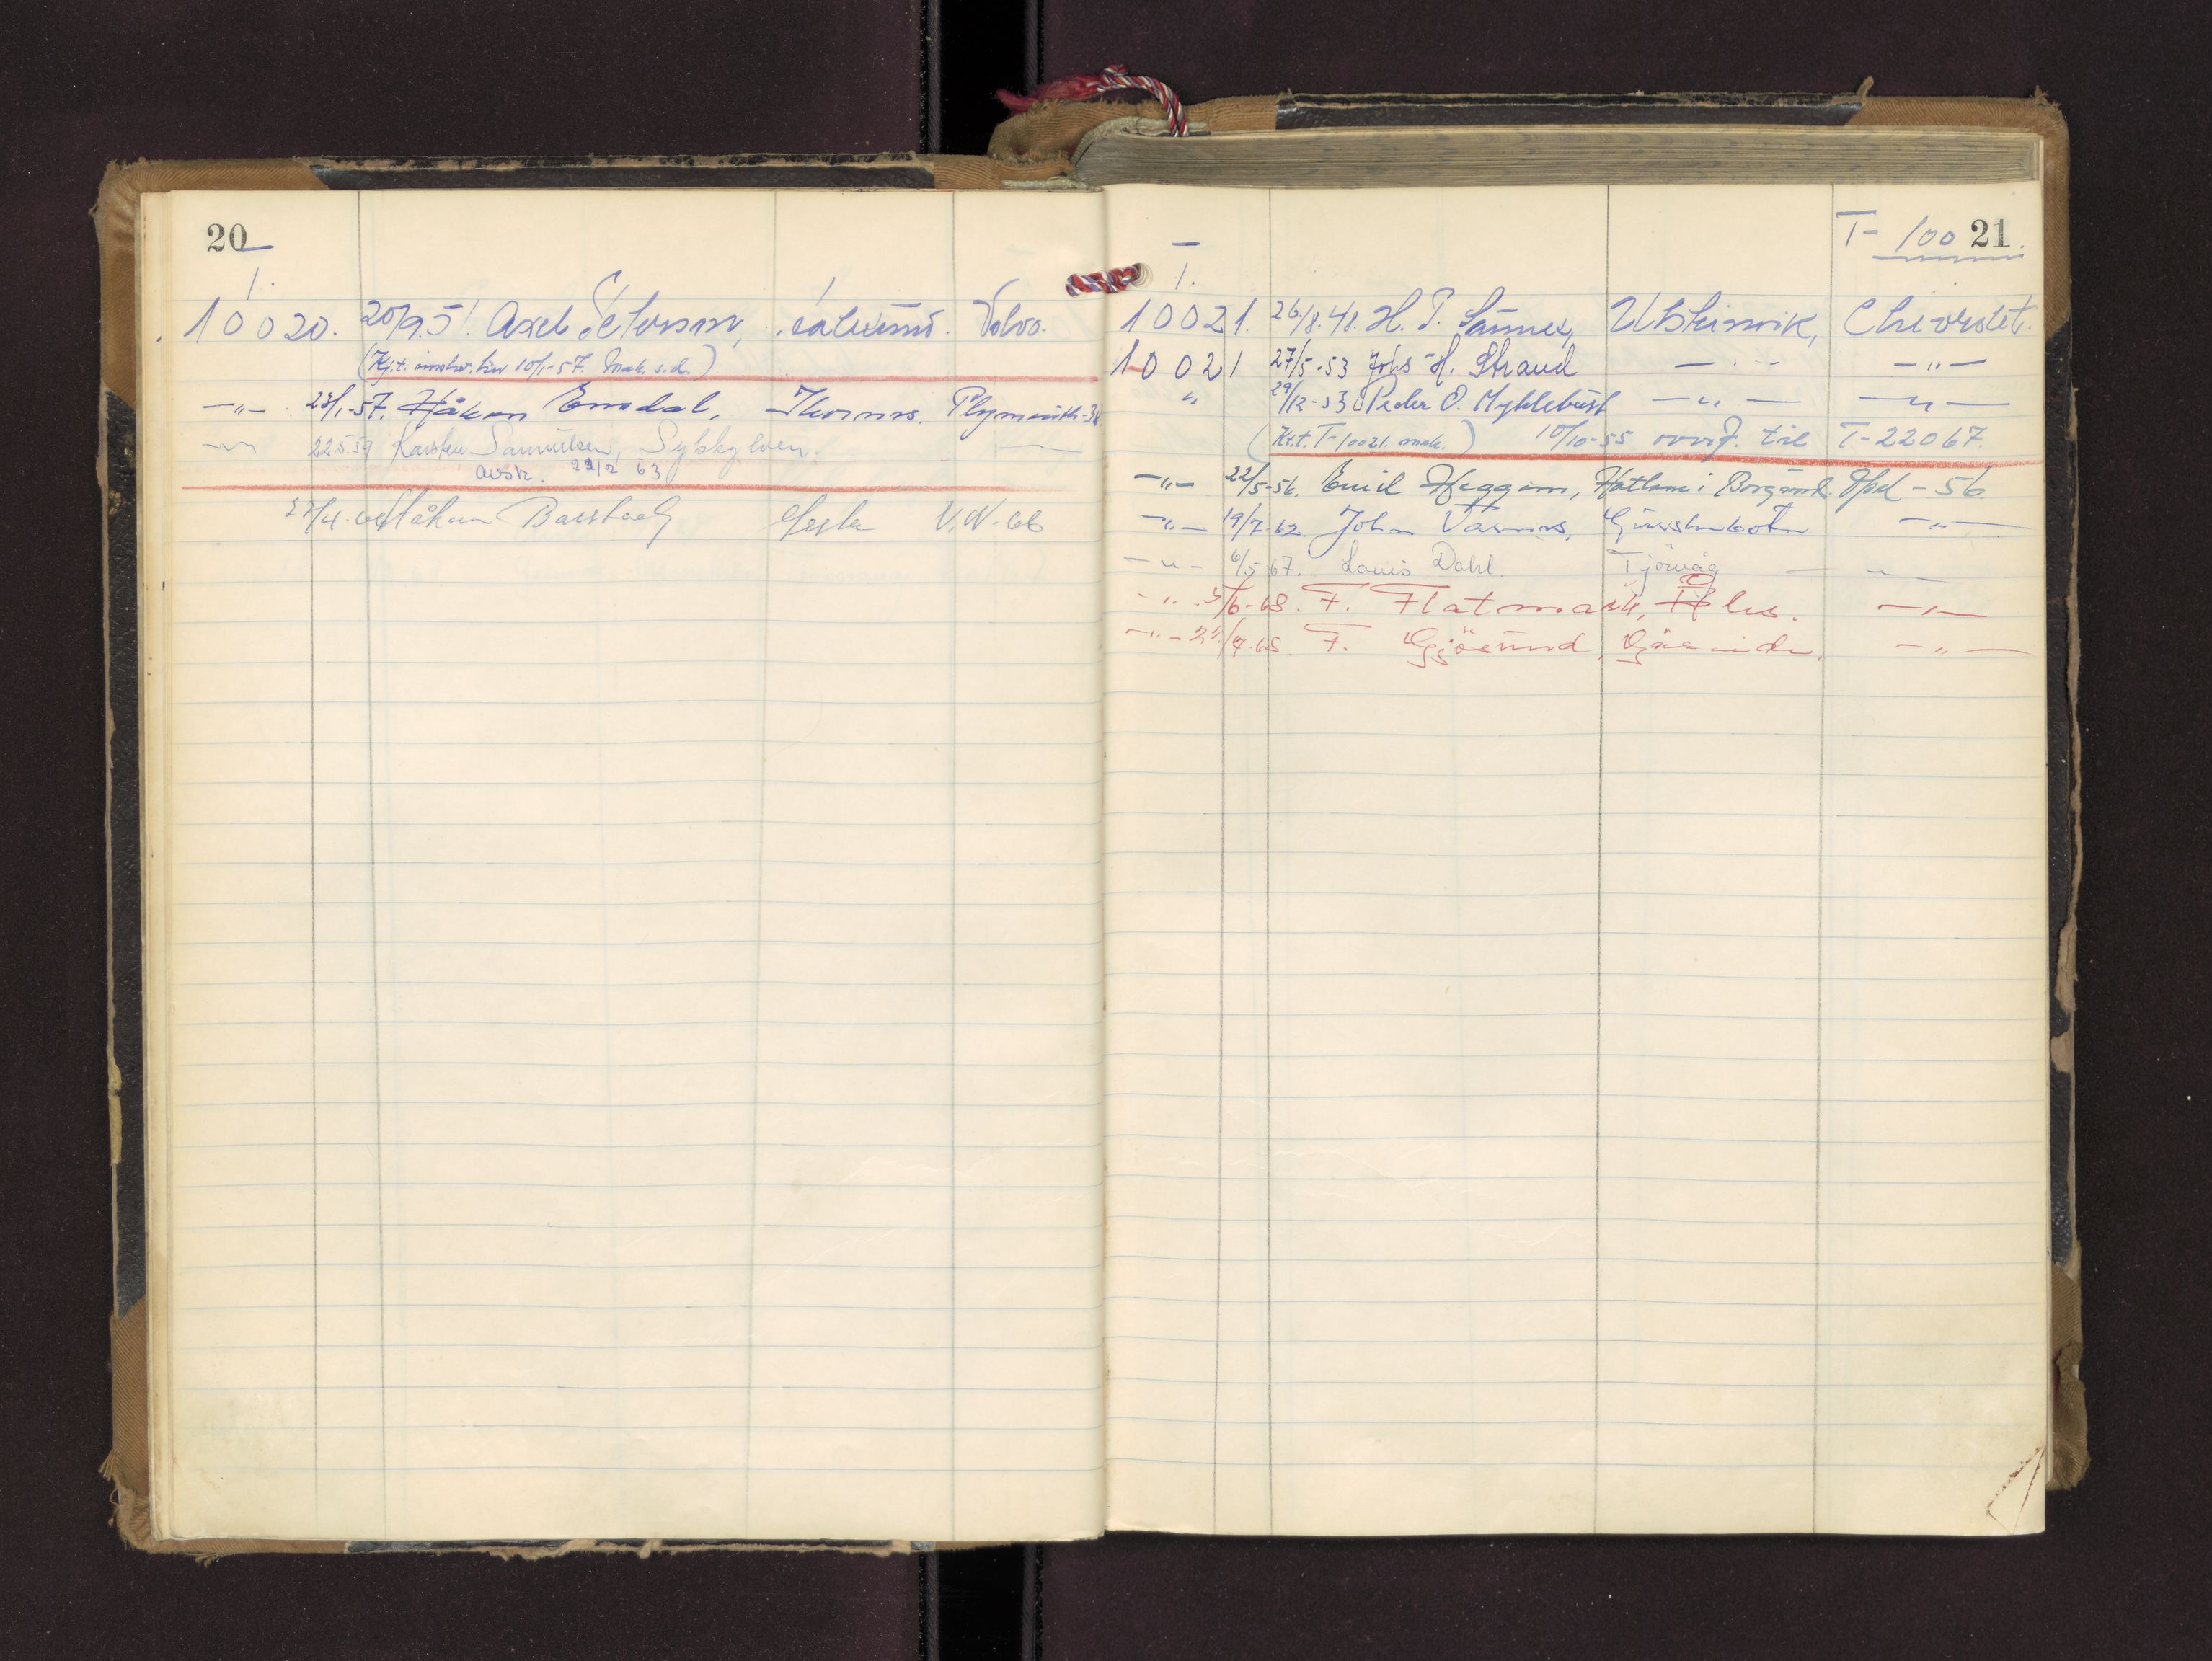 20
10020. 20/9.51. Axel Peterson, Volvo.
(Kj.t. innlev. her 10/1-57. Mak. s.d.)
—"— 23/1-57. Håkon Emdal, Plymouth-38
—"— 22.5.59 Karsten Samuelsen, Sykkylven. —"—
avsk. 22/2 63
27/4-66 Håkon Gursken V.W-66
T- 100 21.
T.
10021. 26/8.48. H. P. Ulsteinvik, Chevrolet.
10021 27/5-53 Johs H. Strand —"— —"—
" 29/12-53 Peder O. Myklebust —"— —"—
(Kt.t. T-10021. mak.) 10/10-55 overf. til T-22067.
—"— 22/5-56. Emil Heggem, Hatlane i Borgund. Opel - 56
—"— 19/7-62. John Gurskebotn —"—
—"— 6/5 67. Louis Dahl. Tjørvåg —"—
—"— 5/6-68. F. Flatmark, Åls. —"—
—"— 22/7-68. F. —"—